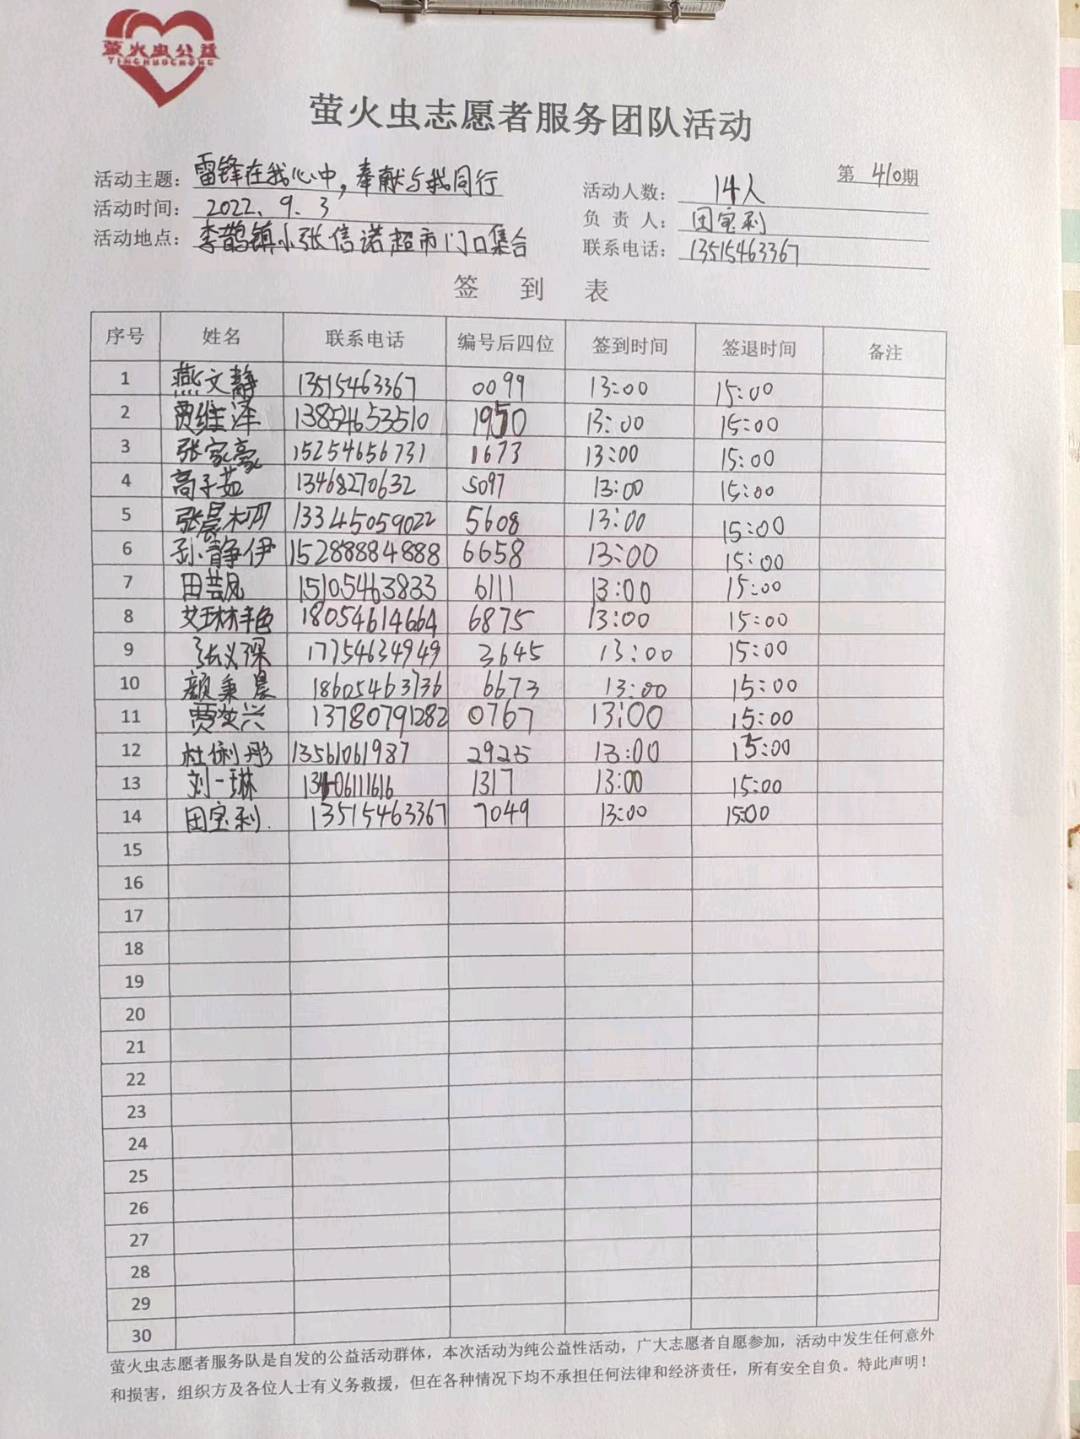 萤火虫公益
YINGHUOCHONG
萤火虫志愿者服务团队活动
第 410期
活动主题：雷锋在我心中，奉献与我同行
活动人数：14人
活动时间：2022.9.3
负 责 人：田宝利
活动地点：李鹊镇小张信诺超市门口集合
联系电话：13515463367
签 到 表
序号 姓名 联系电话 编号后四位 签到时间 签退时间 备注
1 燕文静 13515463367 0099 13:00 15:00
2 贾维泽 13854653510 1950 13:00 15:00
3 张家豪 15254656731 1673 13:00 15:00
4 高子茹 13468270632 5097 13:00 15:00
5 张晨 13345059022 5608 13:00 15:00
6 孙静伊 15288884888 6658 13:00 15:00
7 田 15105463833 6111 13:00 15:00
8 艾琳 18054614664 6875 13:00 15:00
9 张义琛 17754634949 3645 13:00 15:00
10 颜秉晨 18605463736 6673 13:00 15:00
11 贾 兴 13780791282 0767 13:00 15:00
12 杜俐彤 13561061987 2925 13:00 15:00
13 刘一琳 13406111616 1317 13:00 15:00
14 田宝利. 13515463367 7049 13:00 15:00
15
16
17
18
19
20
21
22
23
24
25
26
27
28
29
30
萤火虫志愿者服务队是自发的公益活动群体，本次活动为纯公益性活动，广大志愿者自愿参加，活动中发生任何意外
和损害，组织方及各位人士有义务救援，但在各种情况下均不承担任何法律和经济责任，所有安全自负。特此声明！